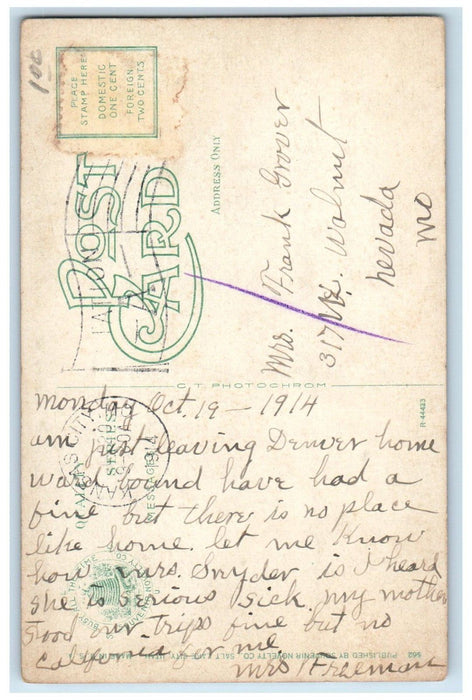 10¢
PLACE
STAMP HERE
DOMESTIC
ONE CENT
FOREIGN
TWO CENTS
POST
CARD
ADDRESS ONLY
Mrs. Frank Grover
317 Walnut
Nevada
Mo
C.T. PHOTOCHROM
R-44423
Monday Oct. 19 - 1914
am just leaving Denver home
ward bound have had a
fine but there is no place
like home. let me Know
how Mrs. Snyder is I heard
she is serious sick. my mother
stood our trips fine but no
California for me.
Mrs Freeman
KANSAS CITY
1914
QUALITY
SERIES
MESSAGE
BUSY ALL THE TIME
562 PUBLISHED BY SOUVENIR NOVELTY CO. SALT LAKE CITY, UTAH. MADE IN U.S.